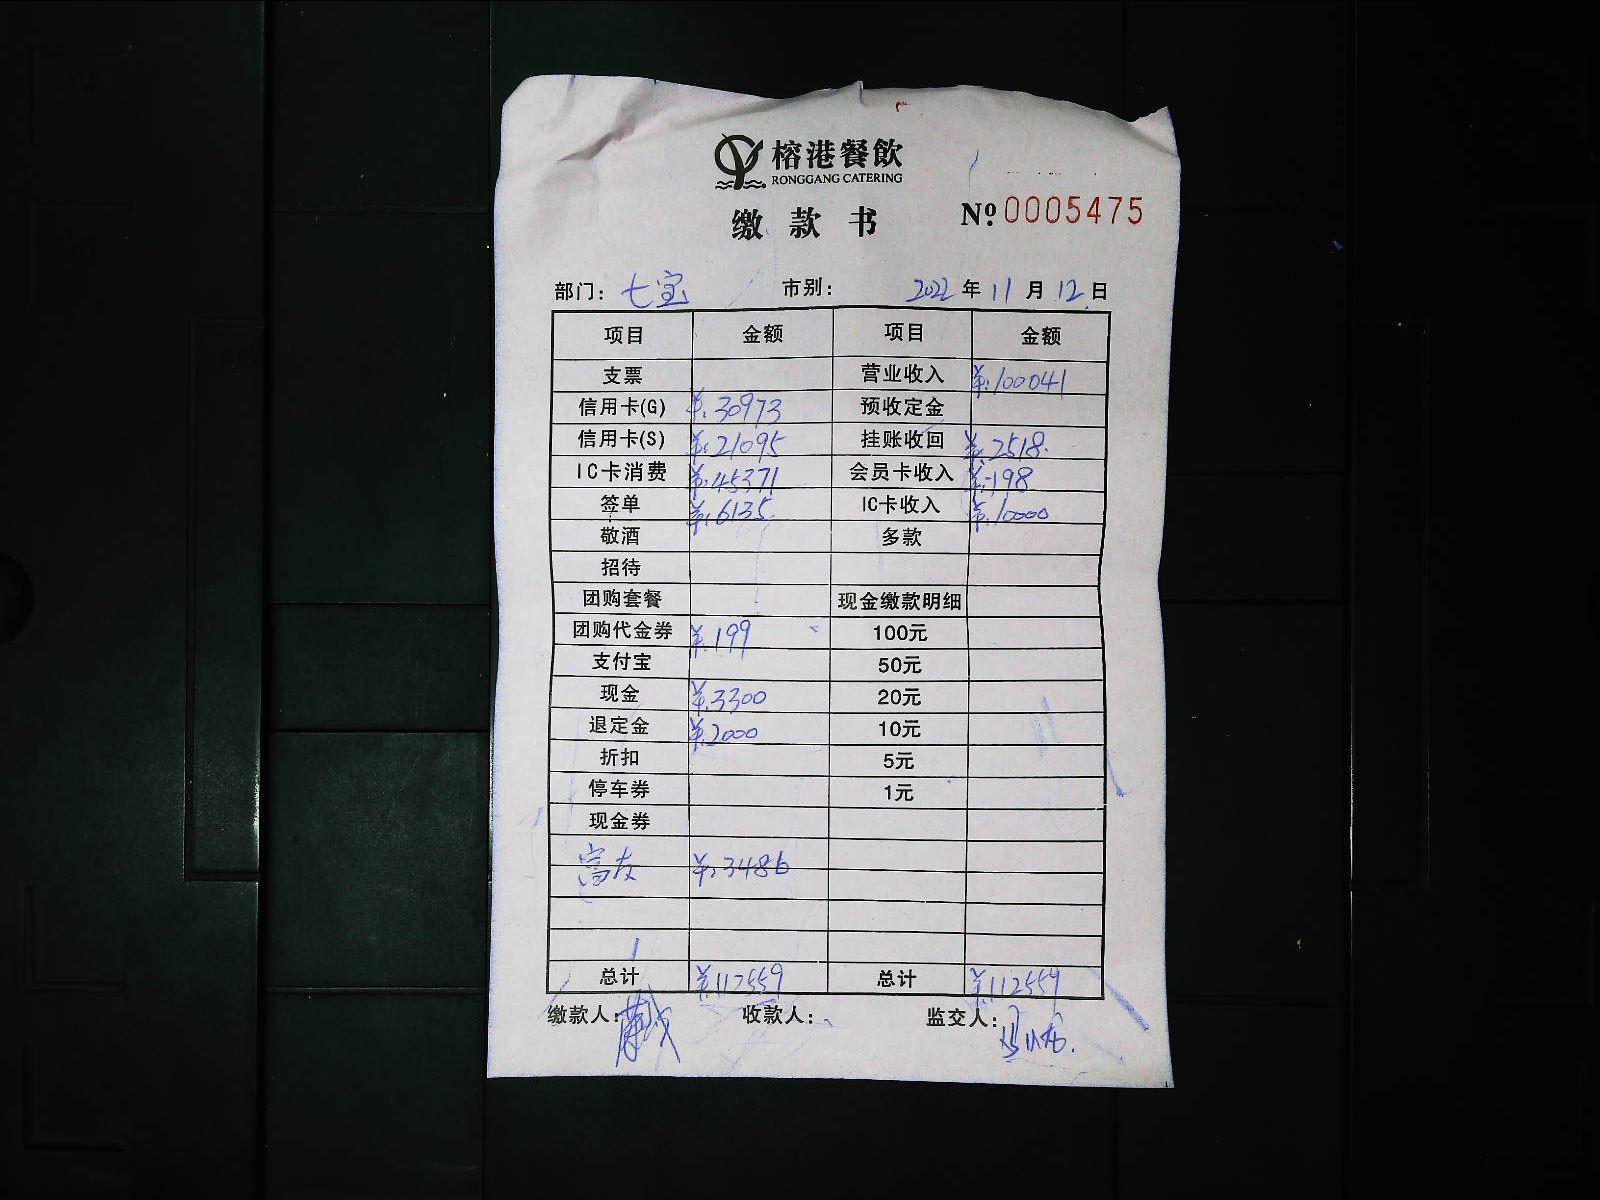 榕港餐飲
RONGGANG CATERING
缴款书 Nº 0005475
部门: 七宝 市别: 2022 年 11 月 12 日
项目 金额 项目 金额
支票 营业收入 ¥:100041
信用卡(G) ¥:30973 预收定金
信用卡(S) ¥:21095 挂账收回 ¥:2518
IC卡消费 ¥:45371 会员卡收入 ¥:198
签单 ¥:6135 IC卡收入 ¥:10000
敬酒 多款
招待
团购套餐 现金缴款明细
团购代金券 ¥:199 100元
支付宝 50元
现金 ¥:3300 20元
退定金 ¥:2000 10元
折扣 5元
停车券 1元
现金券
富友 ¥:3486
总计 ¥:112559 总计 ¥:112559
缴款人: 收款人: 监交人: